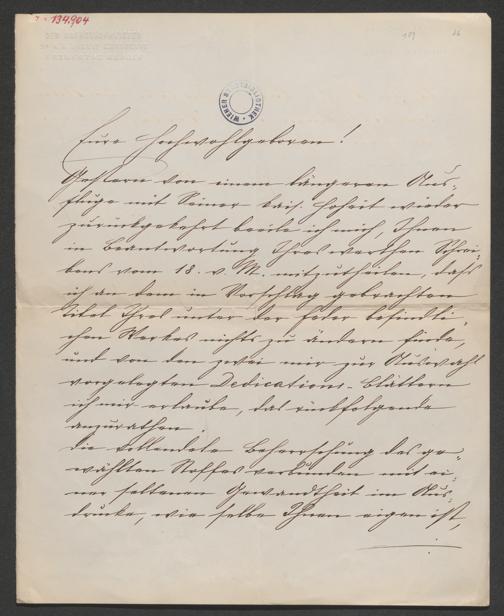 134,904
Eure Hochwohlgeboren!
Gestern von einem längeren Aus-
fluge mit Seiner kais. Hoheit wieder
zurückgekehrt beeile ich mich, Ihnen
in Beantwortung Ihres werthen Schrei-
bens vom 18. v. M. mitzutheilen, daß
ich an dem in Vorschlag gebrachten
Titel Ihres unter der Feder befindli-
chen Werkes nichts zu ändern finde,
und von den zwei mir zur Auswahl
vorgelegten Dedications-Blättern
ich mir erlaube, das rückfolgende
anzurathen.
Die vollendete Beherrschung des ge-
wählten Stoffes verbunden mit ei-
ner seltenen Gewandtheit im Aus-
drucke, wie selbe Ihnen eigen ist,